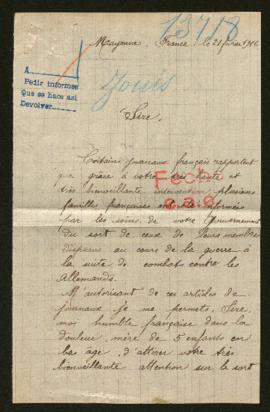 13718
Mayenne, France, le 21 février 1916
A
Pedir informes
Que se hace así
Devolver
Sire,
Certains journaux français rapportent
que grâce à votre très haute et
très bienveillante intervention, plusieurs
familles françaises ont été informées
par les soins de votre Gouvernement
du sort de ceux de leurs membres
disparus au cours de la guerre à
la suite de combat contre les
Allemands.
M'autorisant de ces articles de
journaux je me permets, Sire,
moi humble française dans la
douleur, mère de 5 enfants en
bas age, d'attirer votre très
bienveillante attention sur le sort